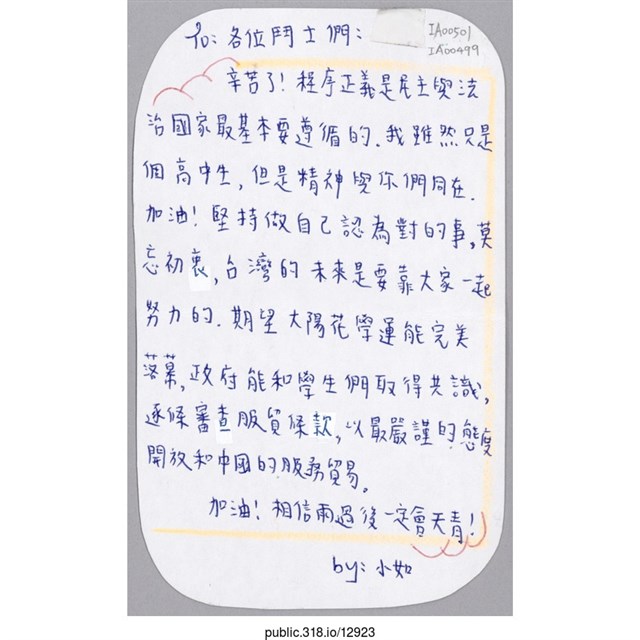 To: 各位鬥士們:
IA00501
IA00499
辛苦了! 程序正義是民主與法
治國家最基本要遵循的. 我雖然只是
個高中生, 但是精神與你們同在.
加油! 堅持做自己認為對的事, 莫
忘初衷, 台灣的未來是要靠大家一起
努力的. 期望太陽花學運能完美
落幕, 政府能和學生們取得共識,
逐條審查服貿條款, 以最嚴謹的態度
開放和中國的服務貿易。
加油! 相信雨過後一定會天青!
by: 小如
public.318.io/12923